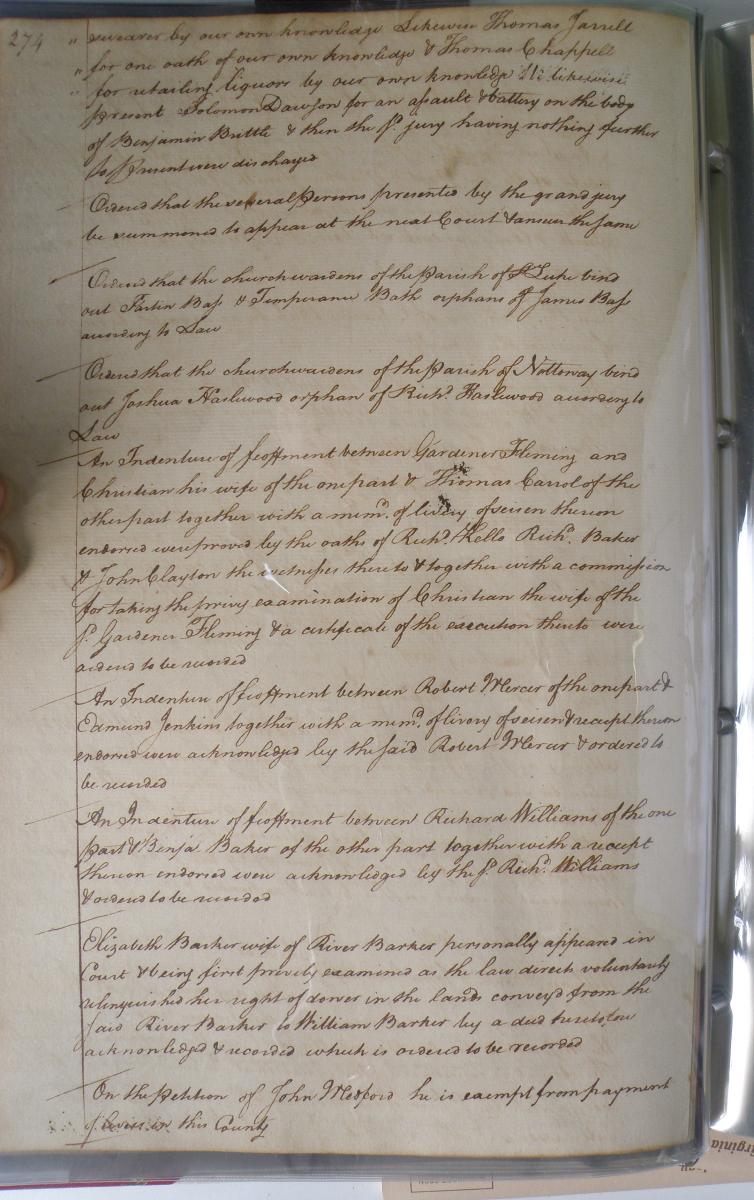 274
" swearer by our own knowledge Likewise Thomas Jarrell
" for one oath of our own knowledge & Thomas Chappell
" for retailing liquors by our own knowledge We likewise
present Solomon Dawson for an assault & battery on the body
of Benjamin Brittle & then the sd. jury having nothing further
to Present were discharged
Ordered that the several persons presented by the grand jury
be summoned to appear at the next Court & answer the same
Ordered that the churchwardens of the Parish of St Luke bind
out Bass & Temperance Bath orphans of James Bass
according to Law
Ordered that the churchwardens of the Parish of Nottoway bind
out Joshua Haslewood orphan of Richd. Haslewood according to
Law
An Indenture of feoffment between Gardener Fleming and
Christian his wife of the one part & Thomas Carrol of the
other part together with a memd. of livery of seisen thereon
endorsed were proved by the oaths of Richd. Kello Richd. Baker
& John Clayton the witnesses thereto & together with a commission
for taking the privy examination of Christian the wife of the
sd. Gardener Fleming & a certificate of the execution thereto were
ordered to be recorded
An Indenture of feoffment between Robert Mercer of the one part &
Edmund Jenkins together with a memd. of livery of seisen & receipt thereon
endorsed were acknowledged by the said Robert Mercer & ordered to
be recorded
An Indenture of feoffment between Richard Williams of the one
part & Benja. Baker of the other part together with a receipt
thereon endorsed were acknowledged by the sd. Richd. Williams
& ordered to be recorded
Elizabeth Barker wife of River Barker personally appeared in
Court & being first privily examined as the law directs voluntarily
relinquished her right of dower in the lands convey'd from the
said River Barker to William Barker by a deed heretofore
acknowledged & recorded which is ordered to be recorded
On the petition of John Medford he is exempt from payment
of levies in this County
irginia